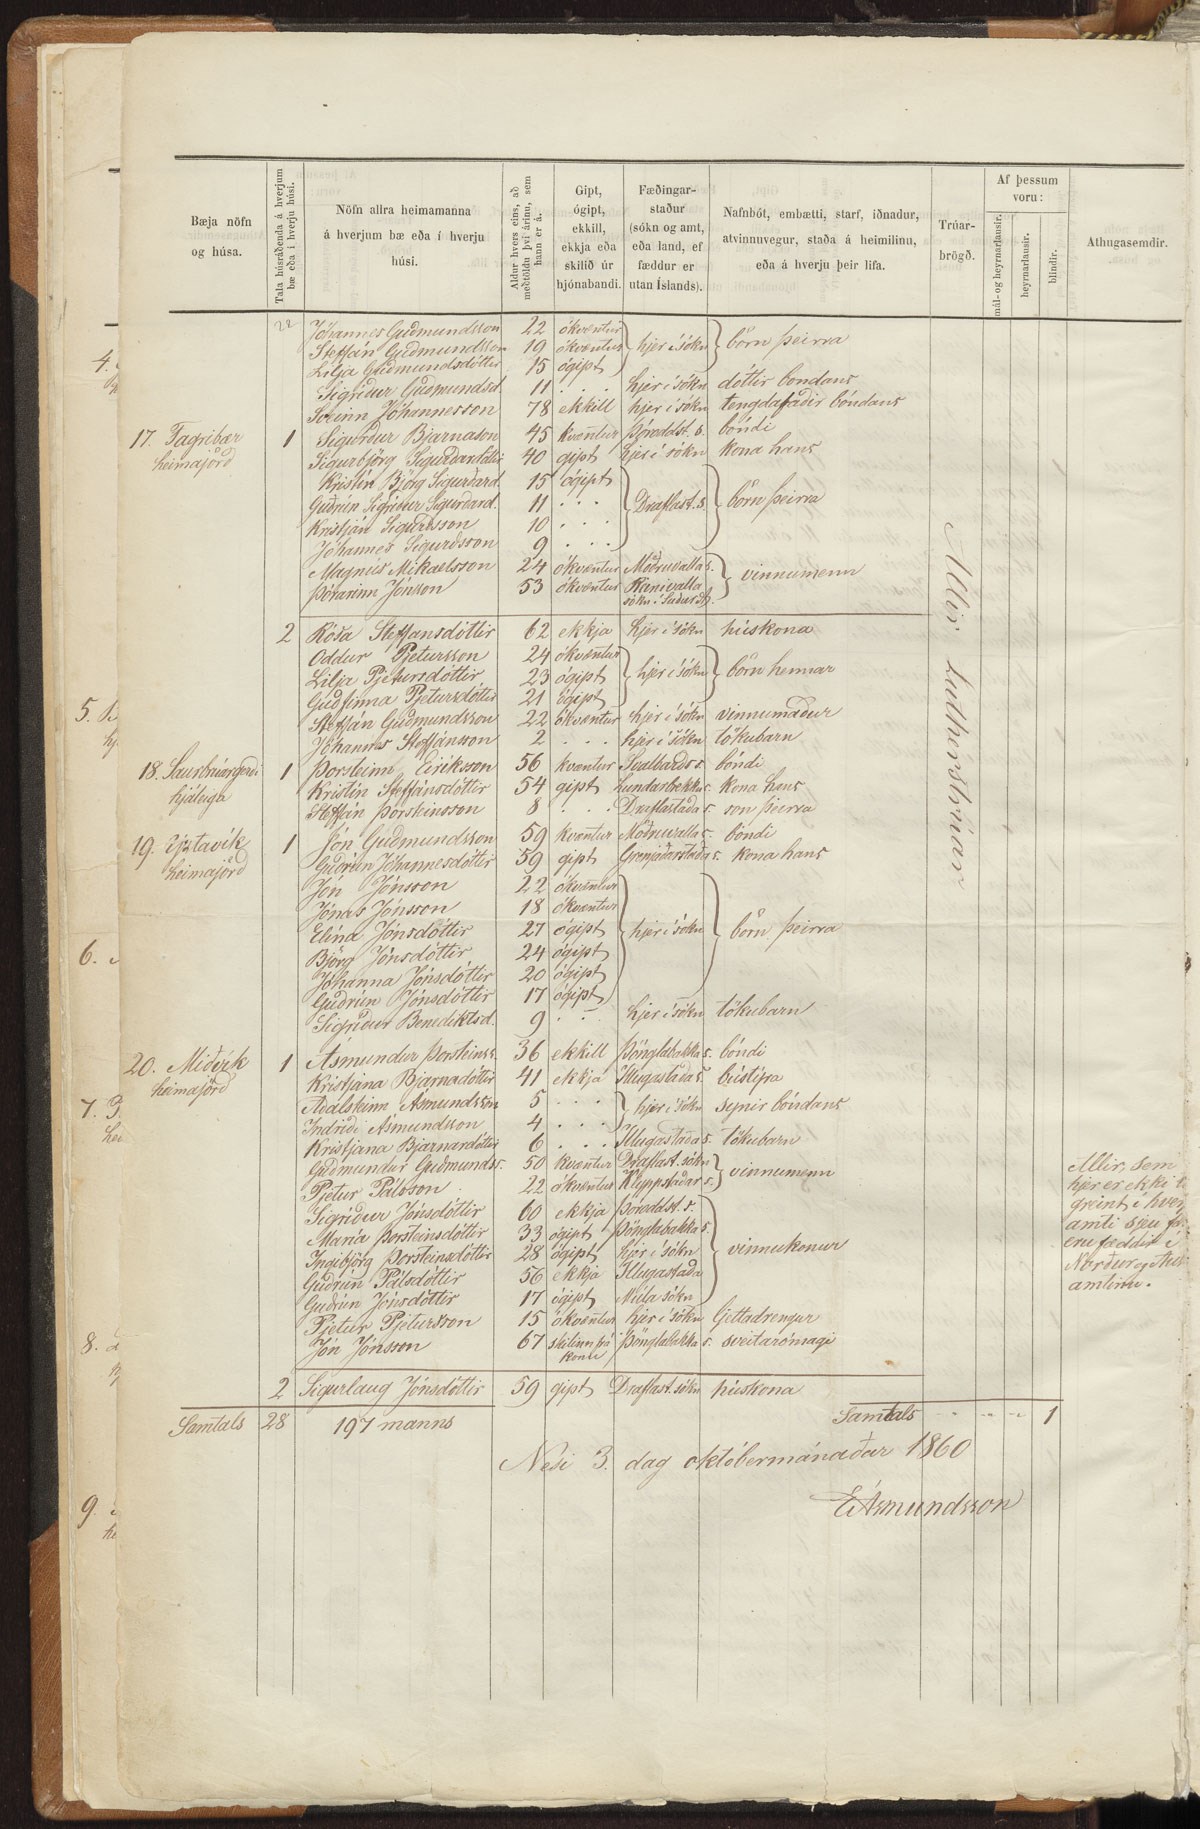 Bæja nöfn og húsa.
Tala húsráðenda á hverjum bæ eða í hverju húsi.
Nöfn allra heimamanna á hverjum bæ eða í hverju húsi.
Aldur hvers eins, að meðtöldu því árinu, sem hann er á.
Gipt, ógipt, ekkill, ekkja eða skilið úr hjónabandi.
Fæðingar-staður (sókn og amt, eða land, ef fæddur er utan Íslands).
Nafnbót, embætti, starf, iðnaður, atvinnuvegur, staða á heimilinu, eða á hverju þeir lifa.
Trúar-brögð.
Af þessum voru:
mál- og heyrnarlausir.
heyrnarlausir.
blindir.
Athugasemdir.
22 Jóhannes Guðmundsson 22 ókvæntur
Steffán Guðmundsson 19 ókvæntur hjer í sókn börn þeirra
Lilja Guðmundsdóttir 15 ógipt
Sigríður Guðmundsd. 11 . . . hjer í sókn dóttir bóndans
Sveinn Jóhannesson 78 ekkill hjer í sókn tengdafaðir bóndans
17. Fagribær 1 Sigurður Bjarnason 45 kvæntur Þóroddst. s. bóndi
heimajörð Sigurbjörg Sigurðardóttir 40 gipt hjer í sókn kona hans
Kristín Björg Sigurðard. 15 ógipt
Guðrún Sigríður Sigurðard. 11 . . . Draflast. s. börn þeirra
Kristján Sigurðsson 10 . . .
Jóhannes Sigurðsson 9 . . .
Magnús Mikaelsson 24 ókvæntur Möðruvalla s. vinnumenn
Þórarinn Jónsson 53 ókvæntur
2 Rósa Steffánsdóttir 62 ekkja hjer í sókn húskona
Oddur Pjetursson 24 ókvæntur
Lilja Pjetursdóttir 23 ógipt hjer í sókn börn hennar
Guðfinna Pjetursdóttir 21 ógipt
Steffán Guðmundsson 22 ókvæntur hjer í sókn vinnumaður
Jóhannes Steffánsson 2 . . . hjer í sókn tökubarn
18. Saurbrúargerði 1 Þorsteinn Eiríksson 56 kvæntur Svalbarðs s bóndi
hjáleiga Kristín Steffánsdóttir 54 gipt Lundarbrekku s. kona hans
Steffán Þorsteinsson 8 . . . Draflastaða s. son þeirra
19. Ýztavík 1 Jón Guðmundsson 59 kvæntur Möðruvalla s. bóndi
heimajörð Guðrún Jóhannesdóttir 59 gipt Grenjaðarstaða s. kona hans
Jón Jónsson 22 ókvæntur
Jónas Jónsson 18 ókvæntur
Elína Jónsdóttir 27 ógipt hjer í sókn börn þeirra
Björg Jónsdóttir 24 ógipt
Jóhanna Jónsdóttir 20 ógipt
Guðrún Jónsdóttir 17 ógipt
Sigríður Benediktsd. 9 . . hjer í sókn tökubarn
20. Miðvík 1 Ásmundur Þorsteinss. 36 ekkill Þönglabakka s. bóndi
heimajörð Kristjana Bjarnadóttir 41 ekkja Illugastaða s. bústýra
Aðalsteinn Ásmundsson 5 . . . hjer í sókn synir bóndans
Indriði Ásmundsson 4 . . .
Kristjana Bjarnardóttir 6 . . . Illugastaða s. tökubarn
Guðmundur Guðmundss. 50 kvæntur Draflast. sókn vinnumenn
Pjetur Pálsson 22 ókvæntur Klyppstaðar s.
Sigríður Jónsdóttir 60 ekkja Þóroddst. s.
María Þorsteinsdóttir 33 ógipt Þönglabakka s.
Ingibjörg Þorsteinsdóttir 28 ógipt hjer í sókn vinnukonur
Guðrún Pálsdóttir 56 ekkja Illugastaða
Guðrún Jónsdóttir 17 ógipt Múla sókn
Pjetur Pjetursson 15 ókvæntur hjer í sókn ljettadrengur
Jón Jónsson 67 skilinn frá konu Þönglabakka s. sveitarómagi
2 Sigurlaug Jónsdóttir 59 gipt Draflast. sókn húskona
Allir Lutherstrúar
Allir, sem
hjer er ekki
greint í hver
amti sjeu
eru fæddir í
Norður og
amtinu.
Samtals 28 197 manns Samtals 1
Nesi 3. dag októbermánaðar 1860
EÁsmundsson
4.
5.
6.
7.
8.
9.